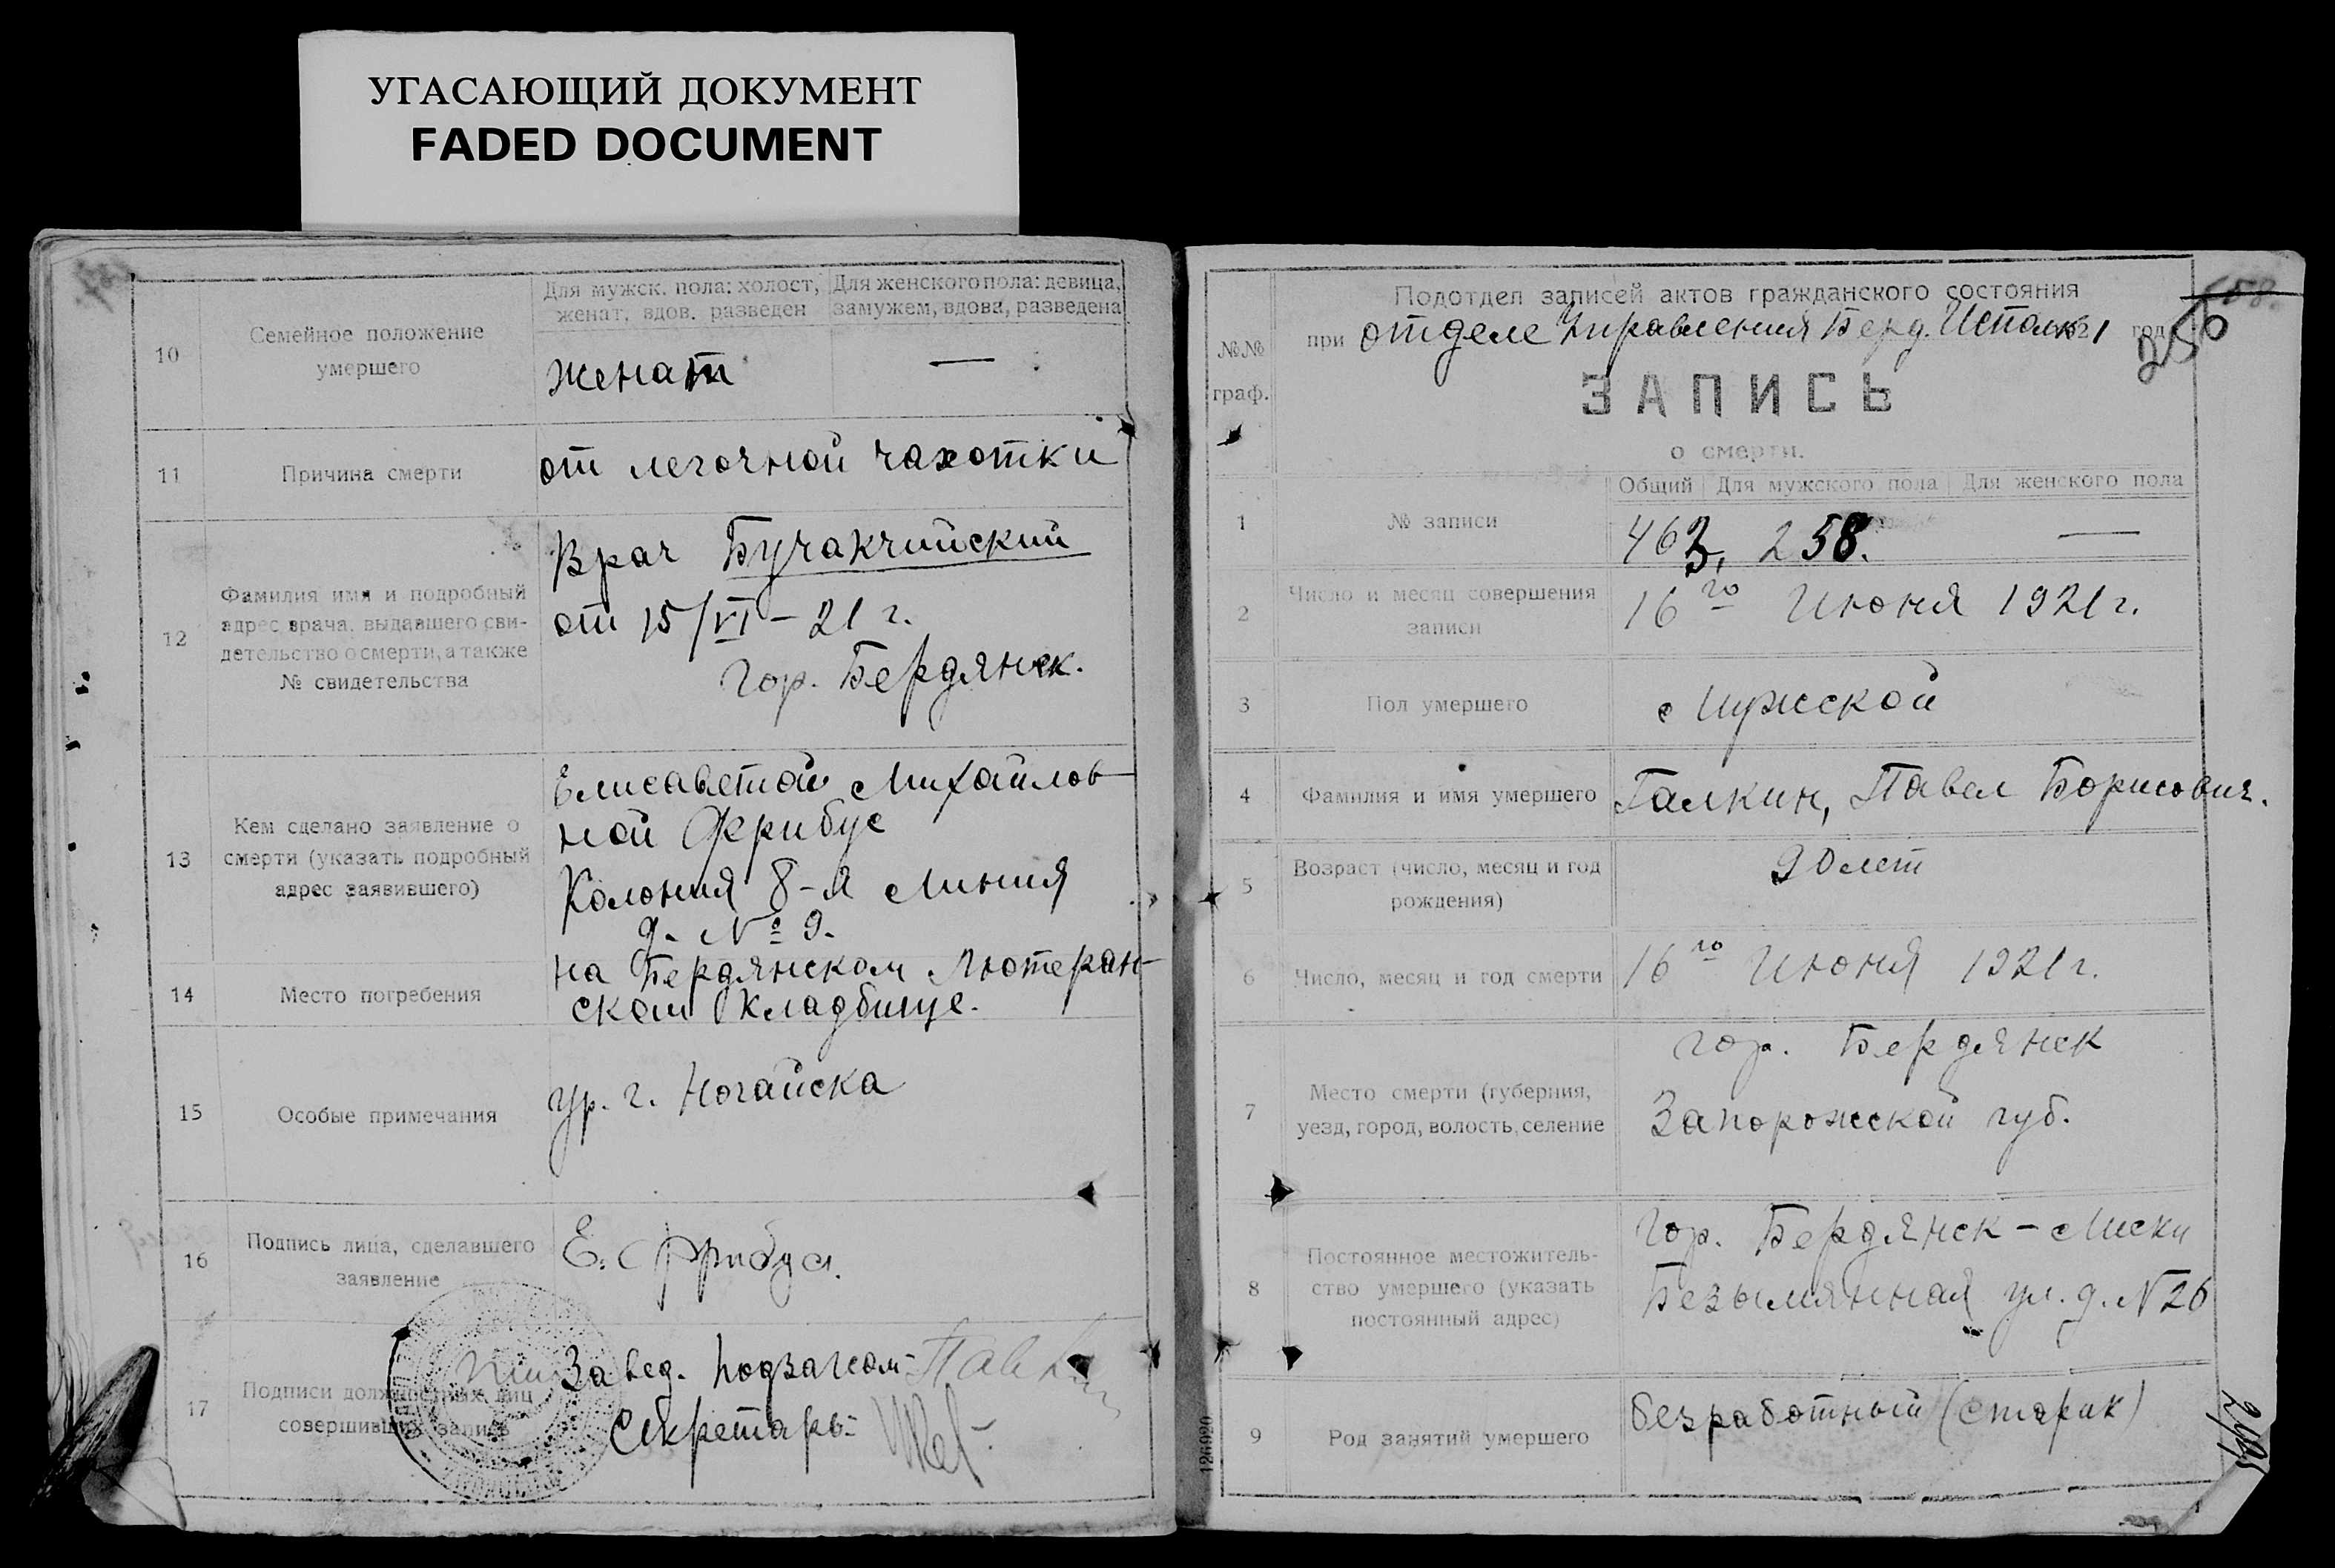 УГАСАЮЩИЙ ДОКУМЕНТ
FADED DOCUMENT
10
Семейное положение
умершего
Для мужск. пола: холост,
женат, вдов. разведен
Для женского пола: девица,
замужем, вдова, разведена
женат
—
11
Причина смерти
от легочной чахотки
12
Фамилия имя и подробный
адрес врача, выдавшего сви-
детельство о смерти, а также
№ свидетельства
Врач Бучакчийский
от 15/VI – 21 г.
гор. Бердянск.
13
Кем сделано заявление о
смерти (указать подробный
адрес заявившего)
Елисаветой Михайлов-
ной Фрибус
Колония 8-я Линия
д. № 9.
14
Место погребения
на Бердянском Лютеран-
ском кладбище.
15
Особые примечания
ур. г. Ногайска
16
Подпись лица, сделавшего
заявление
Е. Фрибус.
17
Подписи должностных лиц
совершивших запись
Завед. Подзагсом-
Секретарь-
№№
граф.
Подотдел записей актов гражданского состояния
при отделе Управления Берд. Исполк. 21 год
258.
256
ЗАПИСЬ
о смерти.
1
№ записи
Общий
Для мужского пола
Для женского пола
463, 258. —
2
Число и месяц совершения
записи
16го Июня 1921 г.
3
Пол умершего
Мужской
4
Фамилия и имя умершего
Галкин, Павел Борисович.
5
Возраст (число, месяц и год
рождения)
90 лет
6
Число, месяц и год смерти
16го Июня 1921 г.
7
Место смерти (губерния,
уезд, город, волость, селение
гор. Бердянск
Запорожской губ.
8
Постоянное местожитель-
ство умершего (указать
постоянный адрес)
Гор. Бердянск – Лиски
Безымянная ул. д. N 26
9
Род занятий умершего
безработный (старик)
126920